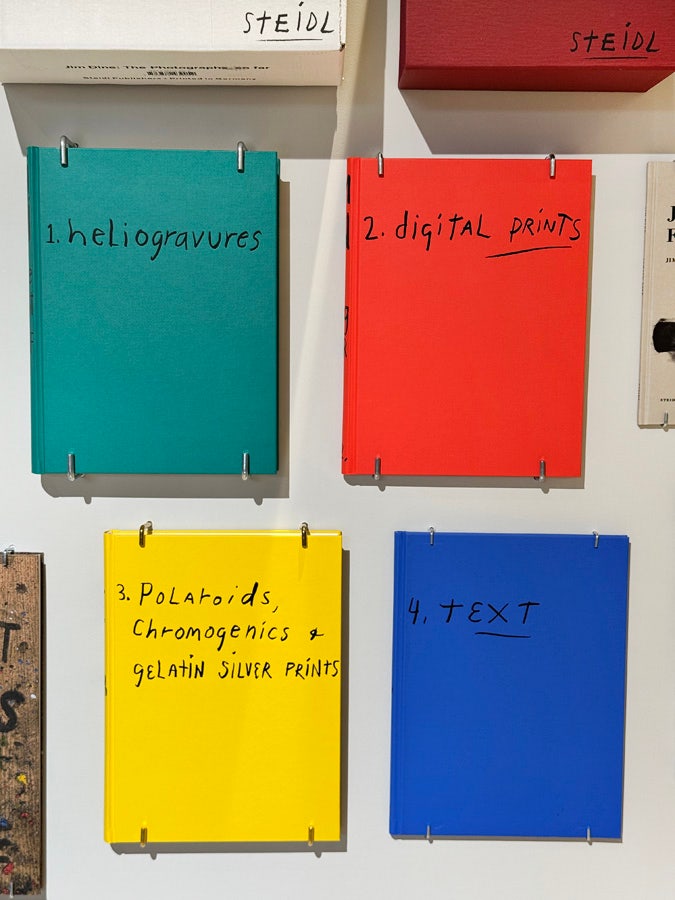 STEiDL
Jim Dine: The Photographs, so far
Steidl Publishers • Printed in Germany
STEiDL
1. heliogravures
2. digiTAL PRiNTS
3. PoLAroids,
Chromogenics &
gELATiN SiLVER PRiNTS
4. TEXT
T
S